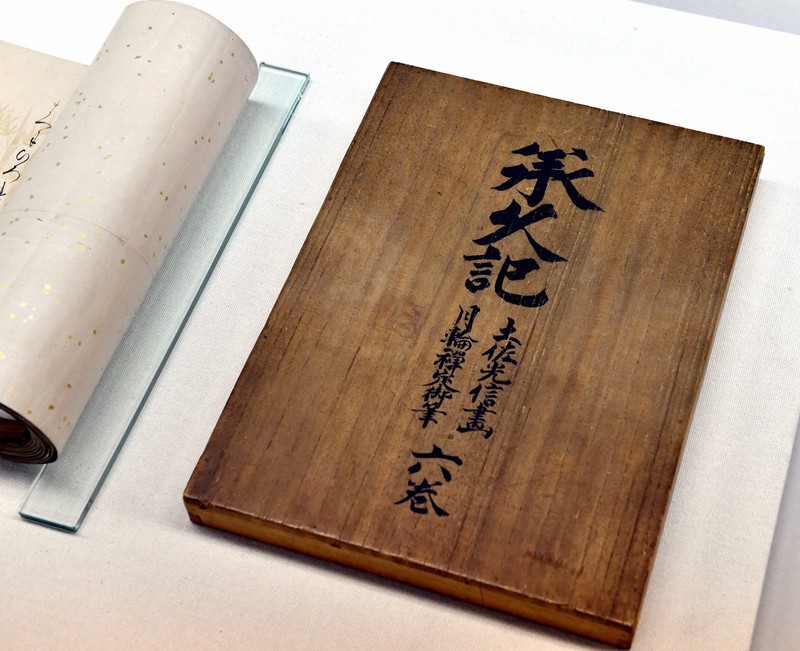 承久記
土佐光信畫
月輪禪定御筆
六巻